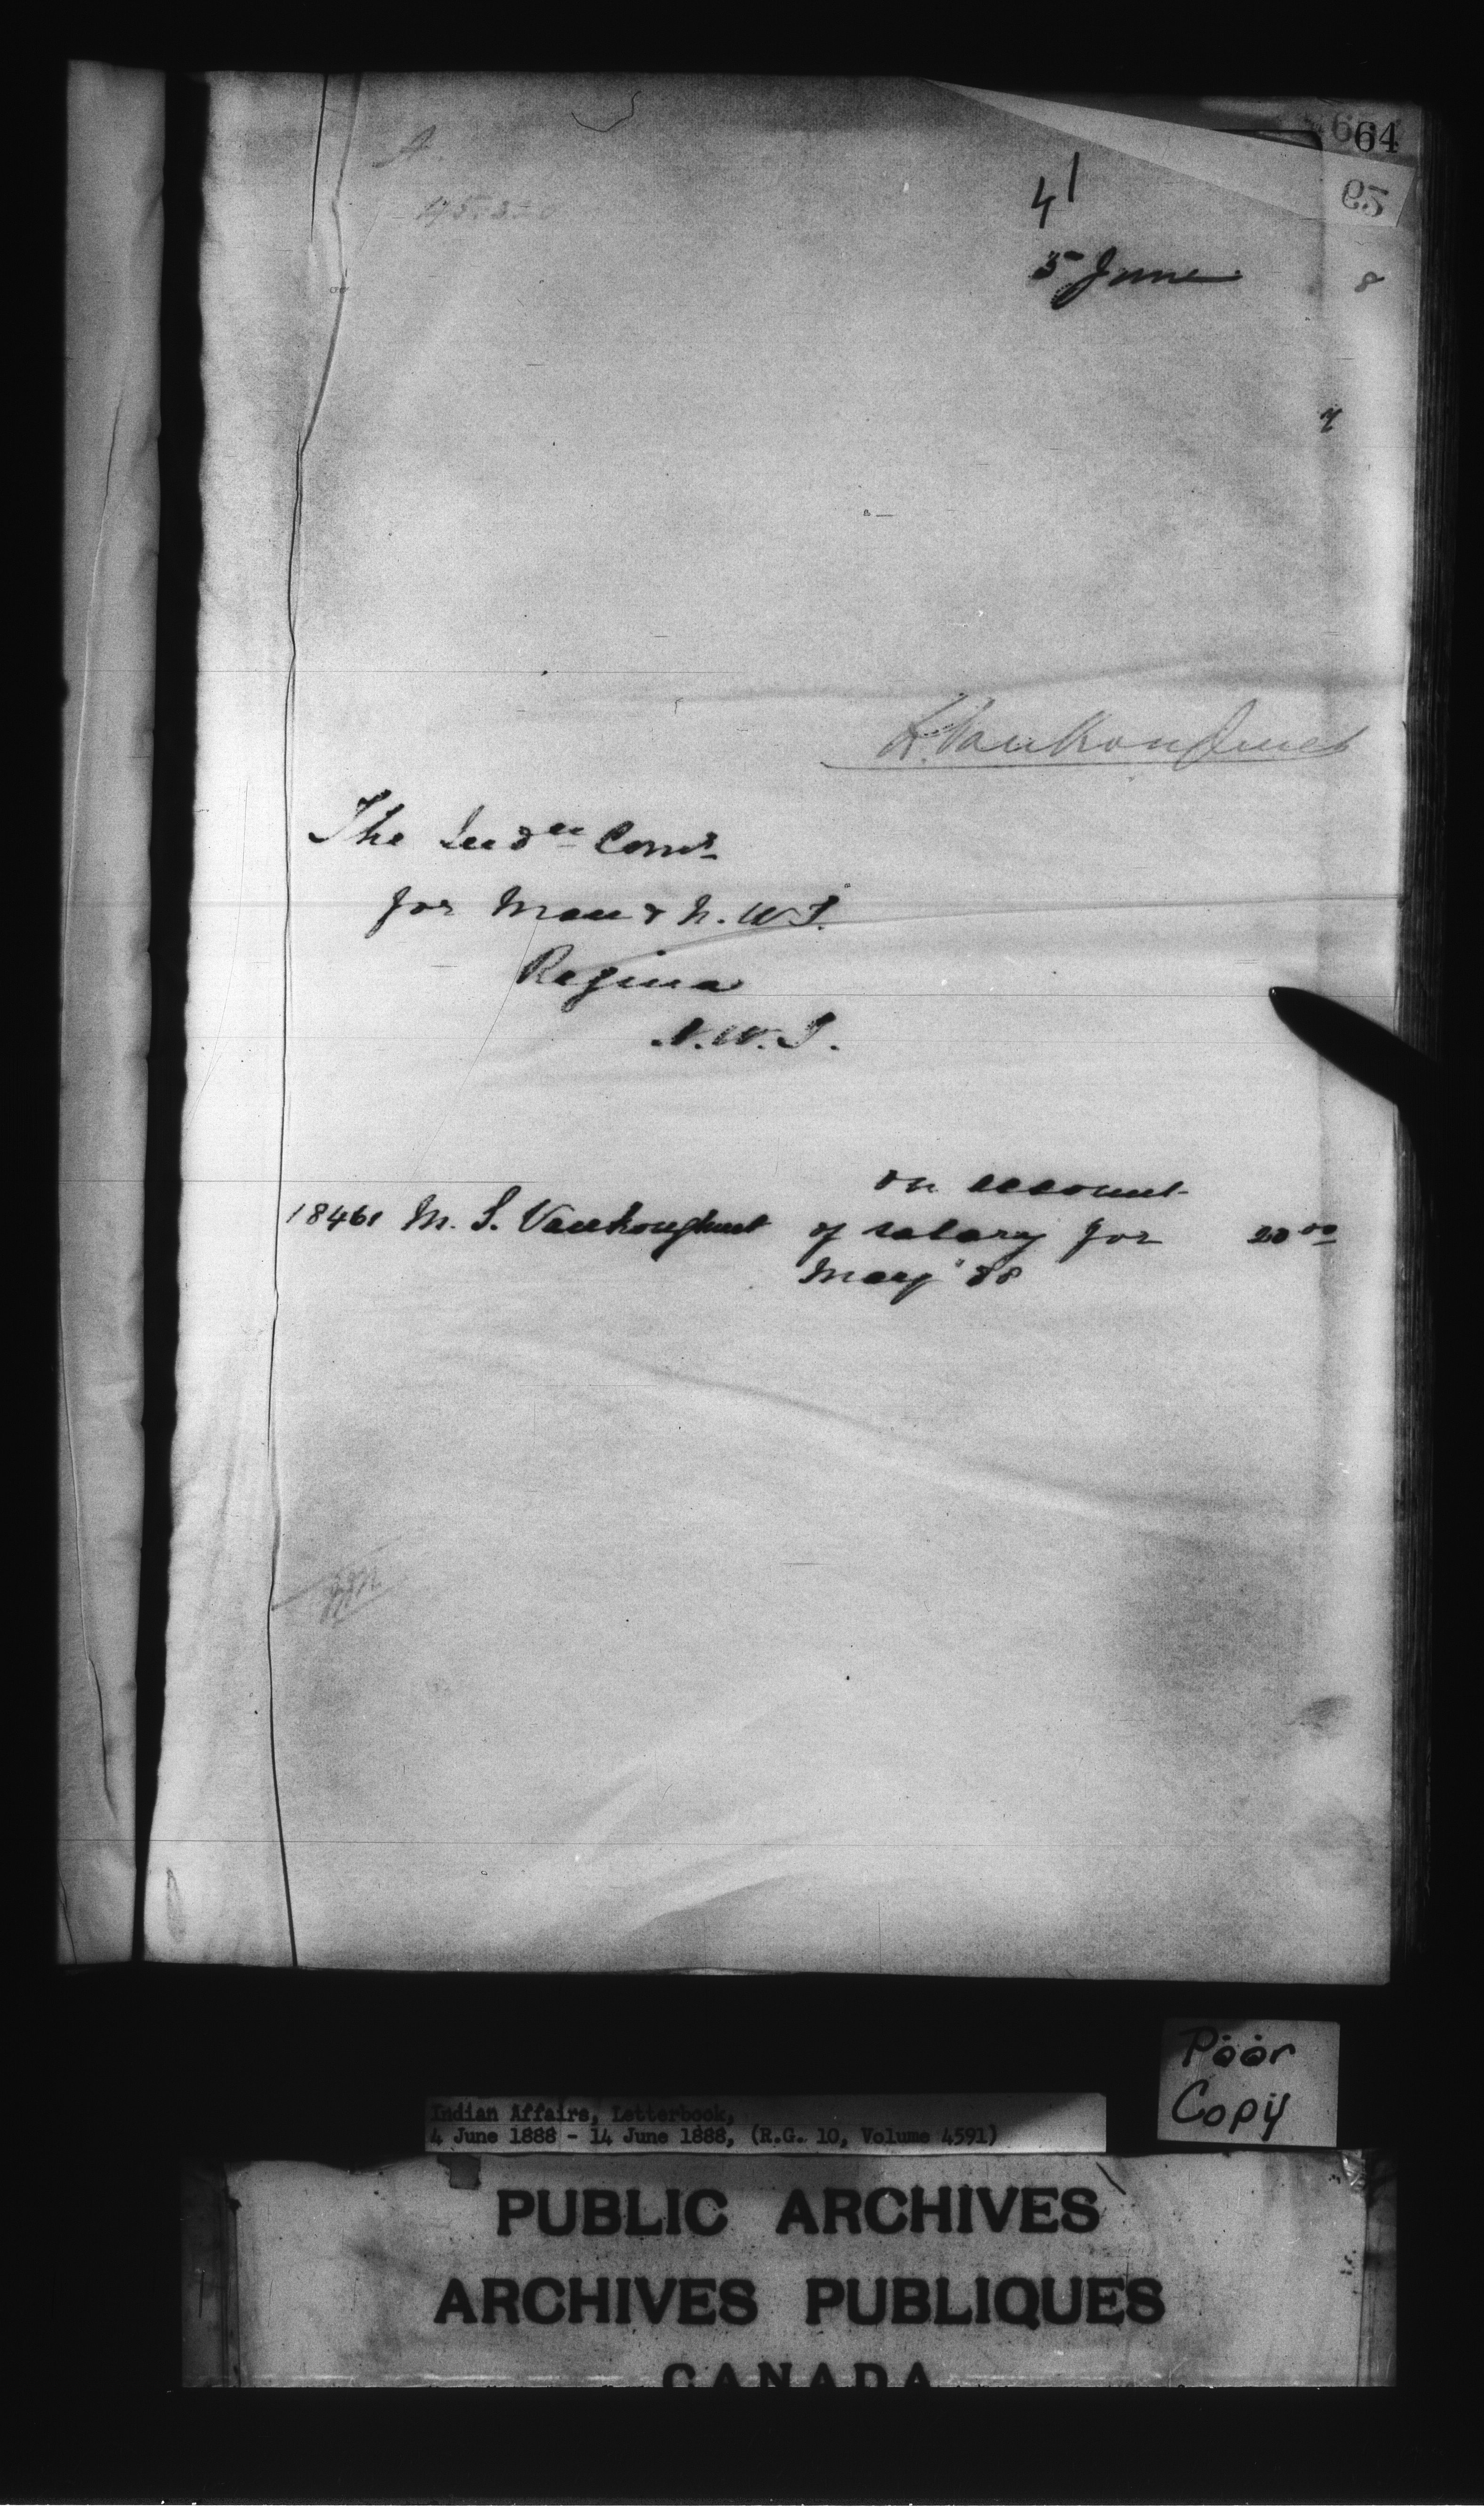 64
65
41
5 June
8
L. VanKoughnet
The Ind^an Com^r
for Man & N.W.T.
Regina
N.W.T.
on account
18461 M. S. Vankoughnet of salary for 20 00
May "88
Poor
Copy
Indian Affairs, Letterbook,
4 June 1888 - 14 June 1888, (R.G. 10, Volume 4591)
PUBLIC ARCHIVES
ARCHIVES PUBLIQUES
CANADA